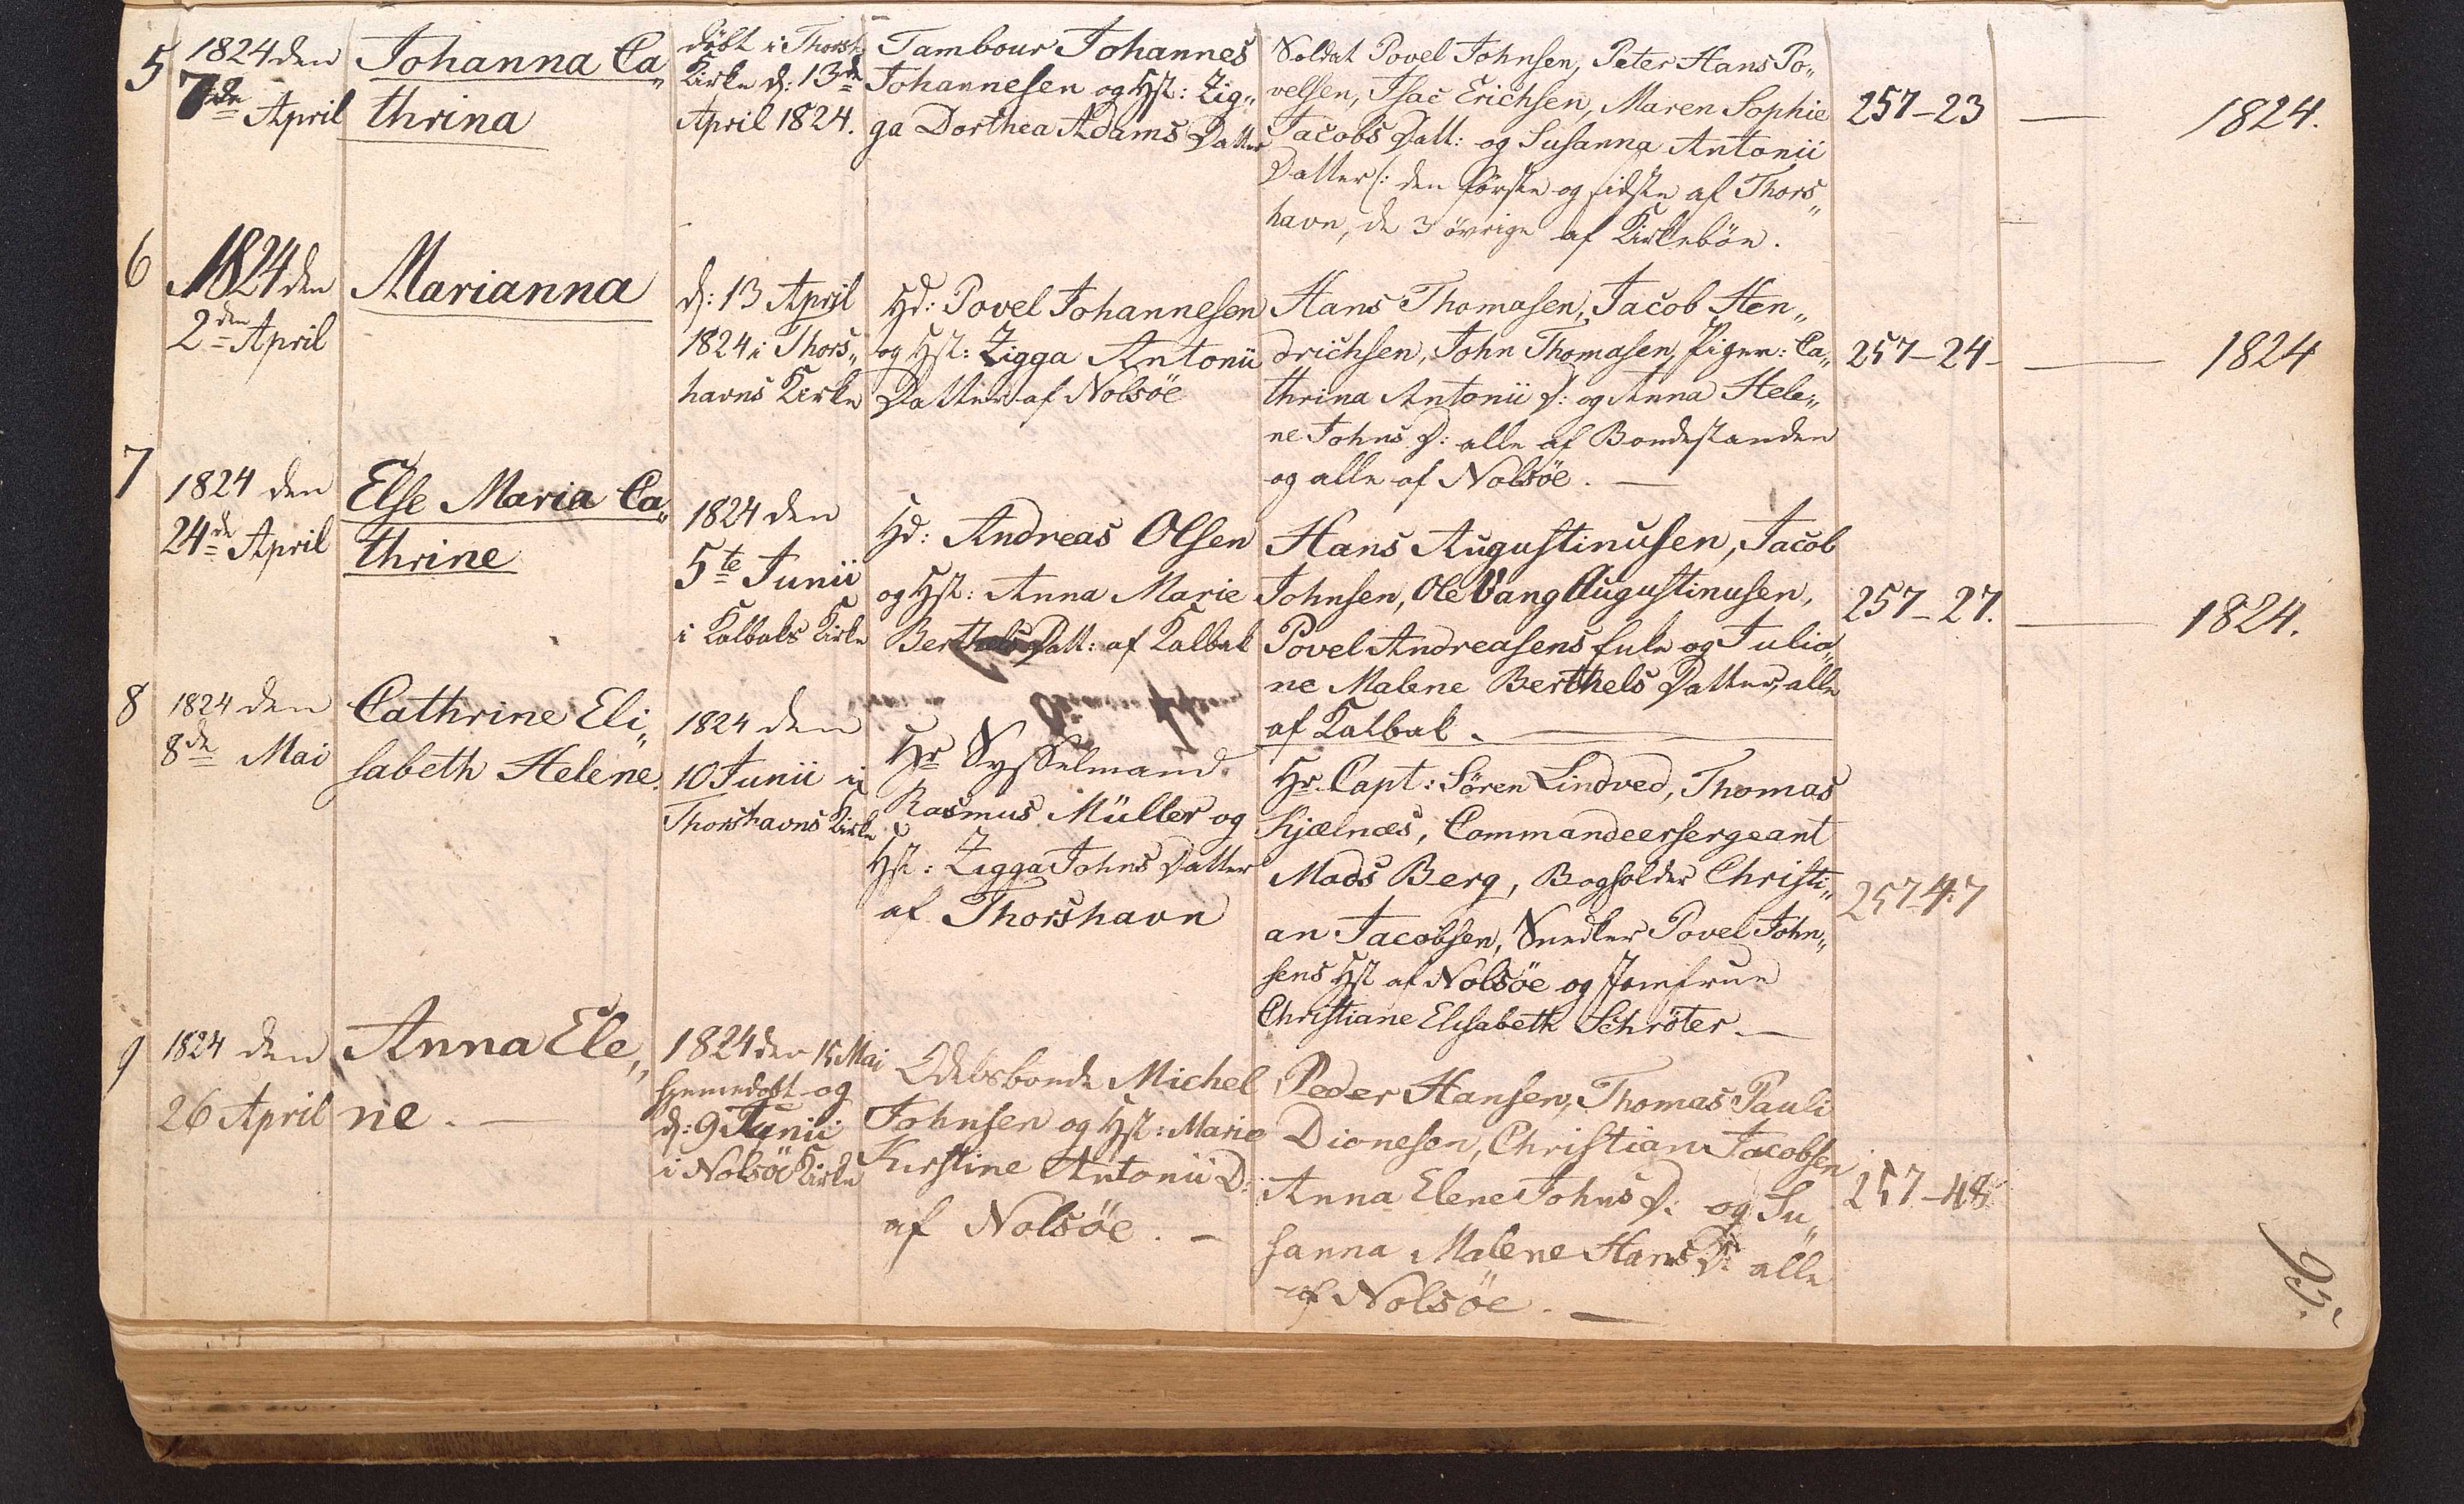 5
1824 den
7de April
Johanna Ca„
thrina
døbt i Thorsh
Kirke d: 13de
April 1824.
Tambour Johannes
Johannesen og Hst: Zig„
ga Dorthea Adams Datter
Soldat Povel Johnsen, Peter Hans Po„
velsen, Isac Erichsen, Maren Sophie
Jacobs Datt: og Susanna Antonii
Datter /: den første og sidste af Thors„
havn, de 3 øvrige af Kirkebøe.
257-23
—
1824.
6
1824 den
2den April
Marianna
d: 13 April
1824 i Thors„
havns Kirke
Hd: Povel Johannesen
og Hst: Zigga Antonii
Datter af Nolsöe
Hans Thomasen, Jacob Hen„
drichsen, John Thomasen, Piger: Ca„
thrina Antonii D: og Anna Hele„
ne Johns D: alle af Bondestanden
og alle af Nolsöe. —
257-24-
—
1824
7
1824 den
24de April
Else Maria Ca„
thrine
1824 den
5te Junii
i Kalbaks Kirke
Hd: Andreas Olsen
og Hst: Anna Marie
Berthels Datt: af Kalbak
Hans Augustinusen, Jacob
Johnsen, Ole Vang Augustinusen,
Povel Andreasens Enke og Julia„
ne Malene Berthels Datter, alle
af Kalbak. —
257-27.
—
1824.
8
1824 den
8de Mai
Cathrine Eli„
sabeth Helene.
1824 den
10 Junii i
Thorshavns Kirke
Hr Sysselmand
Rasmus Müller og
Hst: Zigga Johns Datter
af Thorshavn
Hr. Capt: Sören Lindved, Thomas
Kjælnæs, Commandeersergeant
Mads Berg, Bogholder Christi„
an Jacobsen, Snedker Povel John„
sens Hst af Nolsöe og Jomfrue
Christiane Elisabeth Schröter. —
257-47
9
1824 den
26 April
Anna Ele„
ne. —
1824 den 15 Mai
hjemmedøbt og
d: 9 Junii
i Nolsöe Kirke
Odelsbonde Michel
Johnsen og Hst: Marie
Kirstine Antonii D:
af Nolsöe. -
Peder Hansen, Thomas Pauli
Dionesen, Christian Jacobsen
Anna Elene Johns D: og Su„
sanna Malene Hans D: alle
af Nolsöe. —
257-48
95.